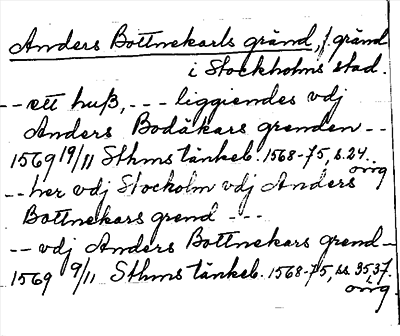 Anders Bottnekarls gränd, f. gränd
i Stockholms stad.
-- ett huß, --- liggiendes vdj
Anders Bodäkars grenden --
1569 19/11 Sthms tänkeb. 1568-75, s. 24.
orig
-- her vdj Stockolm vdj Anders
Bottnekars grend ---
-- vdj Anders Bottnekars grend --
1569 9/11 Sthms tänkeb. 1568-75, ss. 35, 37.
orig